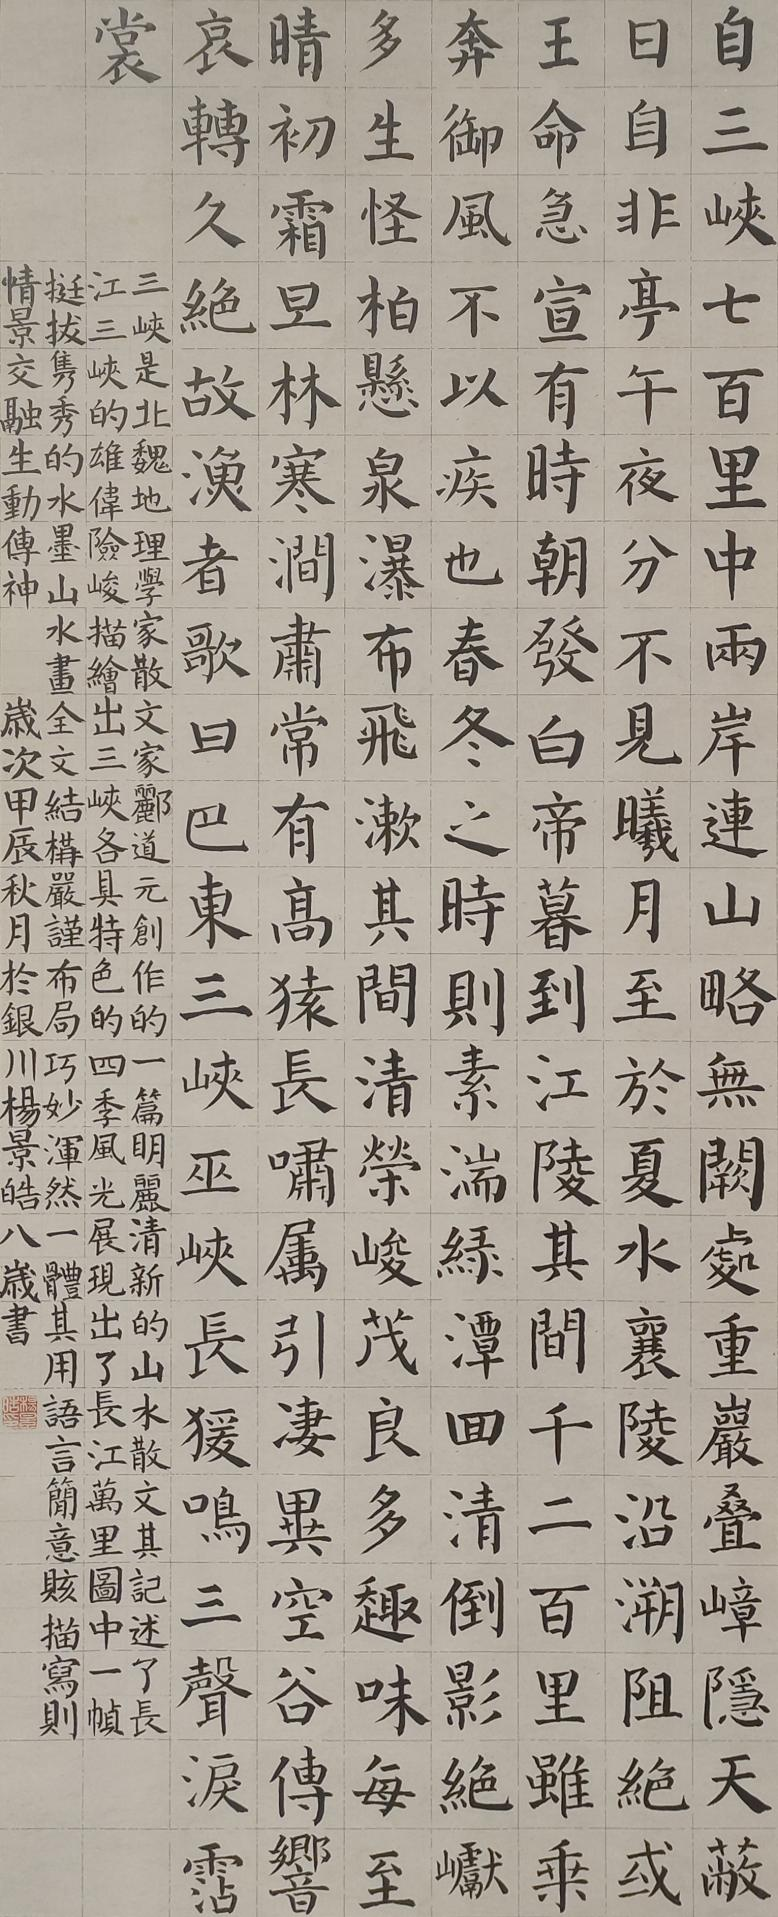 自三峽七百里中兩岸連山略無闕處重巖叠嶂隱天蔽
日自非亭午夜分不見曦月至於夏水襄陵沿溯阻絕或
王命急宣有時朝發白帝暮到江陵其間千二百里雖乘
奔御風不以疾也春冬之時則素湍緑潭回清倒影絕巘
多生怪柏懸泉瀑布飛漱其間清榮峻茂良多趣味每至
晴初霜旦林寒澗肅常有高猿長嘯属引凄異空谷傳響
哀轉久絕故漁者歌曰巴東三峽巫峽長猨鳴三聲淚霑
裳
三峽是北魏地理學家散文家酈道元創作的一篇明麗清新的山水散文其記述了長
江三峽的雄偉險峻描繪出三峽各具特色的四季風光展現出了長江萬里圖中一幀
挺拔雋秀的水墨山水畫全文結構嚴謹布局巧妙渾然一體其用語言簡意賅描寫則
情景交融生動傳神
歲次甲辰秋月於銀川楊景皓八歲書